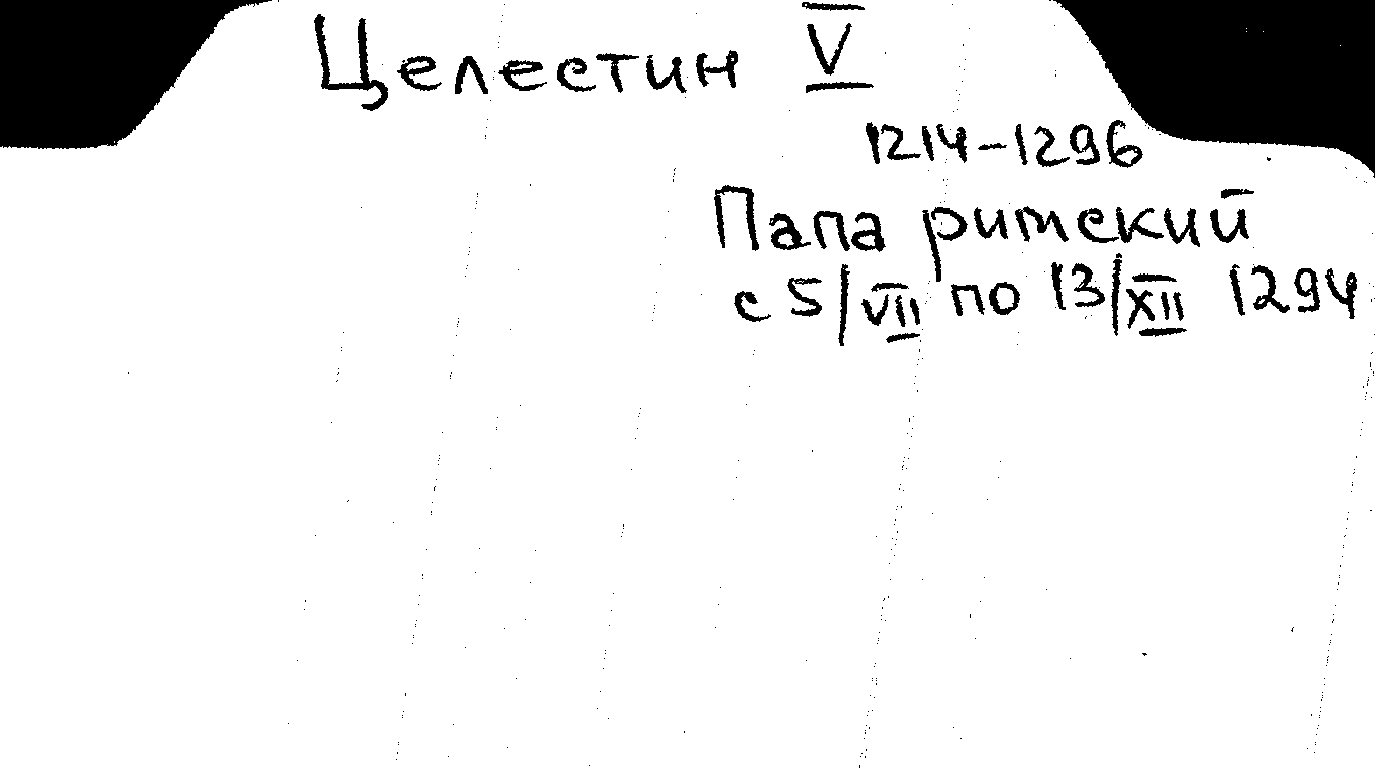 Целестин V
1214-1296
Папа римский
с 5/VII по 13/XII 1294